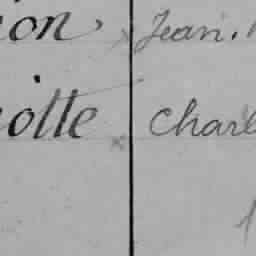 ion, Jean,
iotte Charl